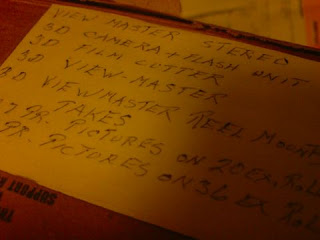 VIEW MASTER STEREO
3D CAMERA + FLASH UNIT
3D FILM CUTTER
3D VIEW-MASTER
3D VIEWMASTER REEL MOUNT
TAKES
PR. PICTURES ON 20 EX. ROLL
PR. PICTURES ON 36 EX ROL
SUPPORT